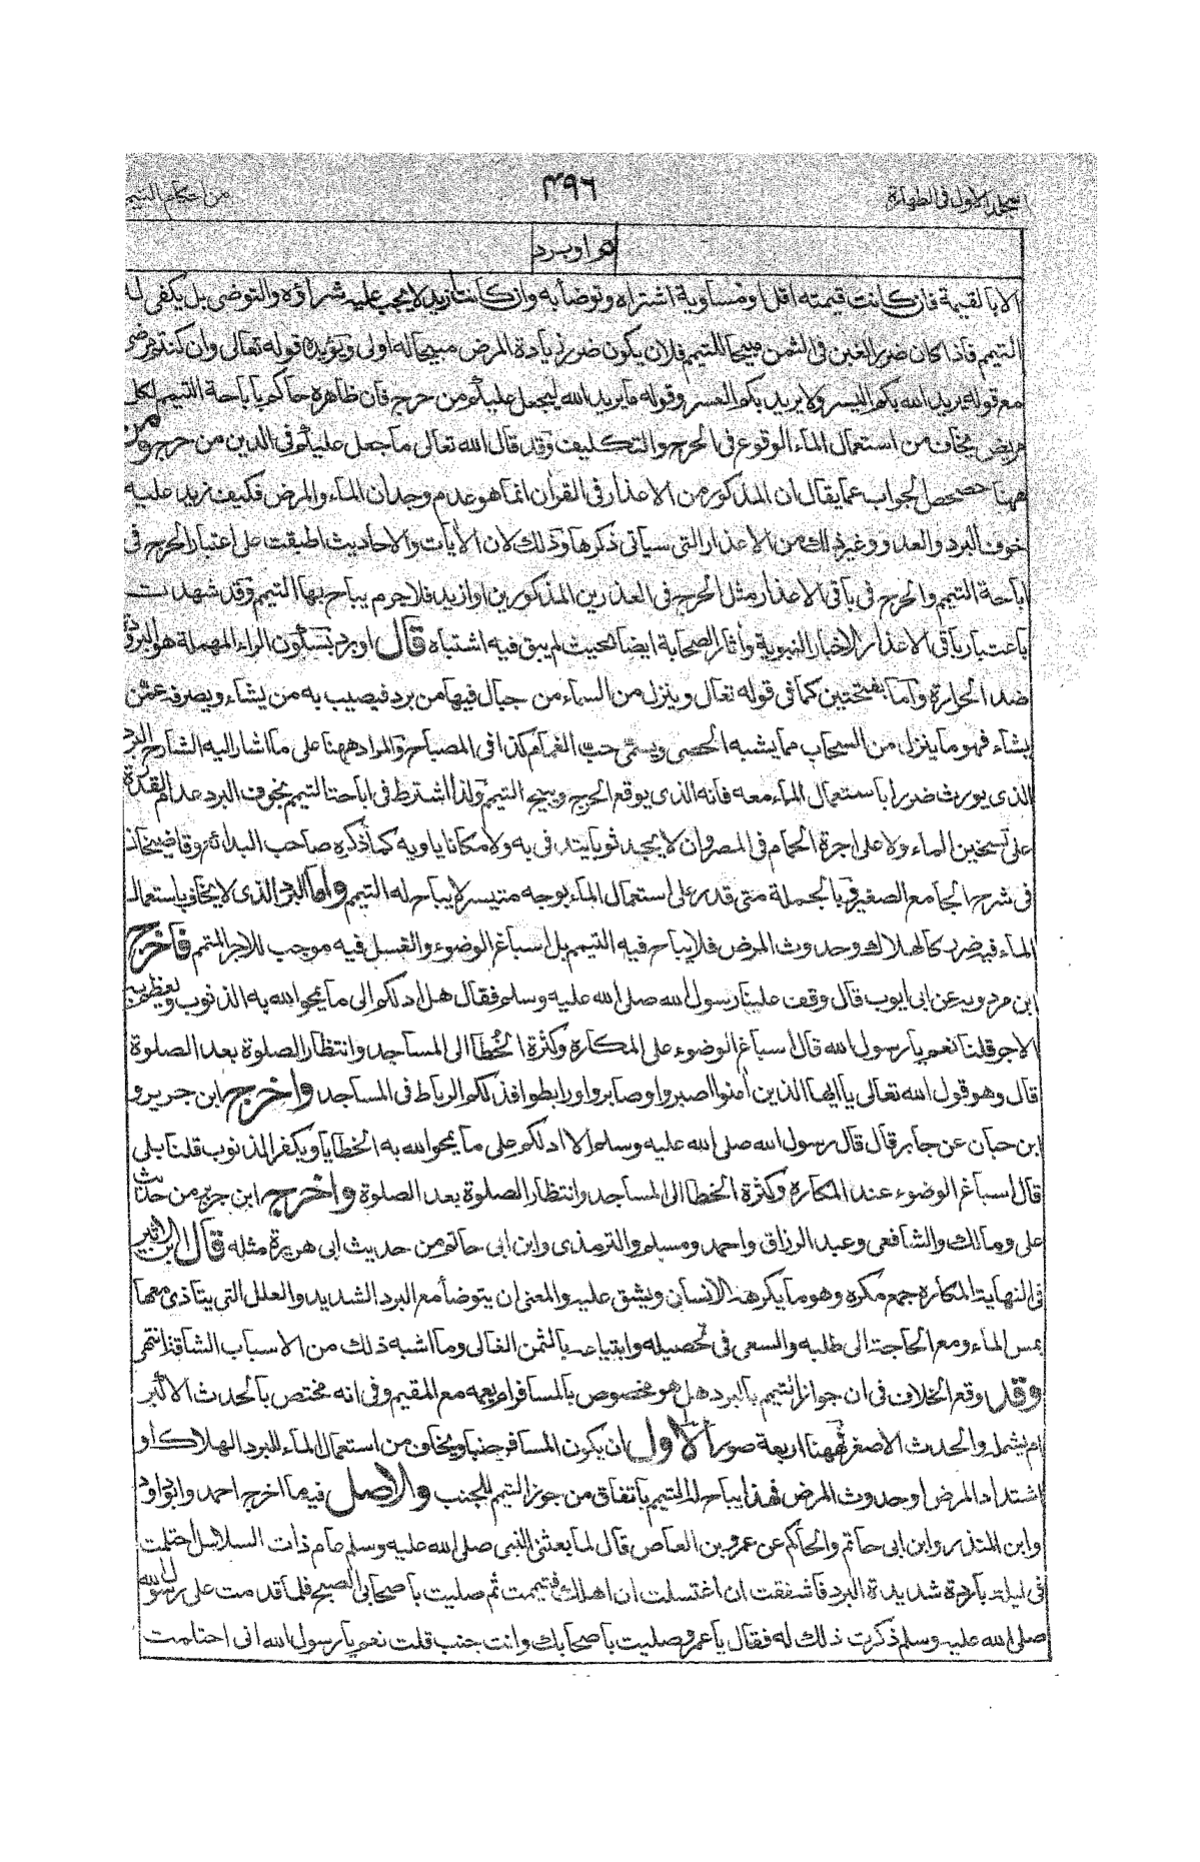 المجلد الاول فى الطهارة
٤٩٦
من احكام التيمم
او برد
الا بالقيمة فان كانت قيمته اقل او مساوية اشتراه وتوضأ به وان كانت ازيد لا يجب عليه شراؤه والتوضى بل يكفى له
التيمم فاذا كان ضرر الغبن فى الثمن مبيحا للتيمم فلان يكون ضرر زيادة المرض مبيحا له اولى ويؤيده قوله تعالى وان كنتم مرضى
مع قوله يريد الله بكم اليسر ولا يريد بكم العسر وقوله ما يريد الله ليجعل عليكم من حرج فان ظاهره حاكم باباحة التيمم لكل
مريض يخاف من استعمال الماء الوقوع فى الحرج والتكليف وقد قال الله تعالى ما جعل عليكم فى الدين من حرج ومن
ههنا حصحص الجواب عما يقال ان المذكور من الاعذار فى القران انما هو عدم وجدان الماء والمرض فكيف نزيد عليه
خوف البرد والعدو وغير ذلك من الاعذار التى سياتى ذكرها وذلك لان الأيات والاحاديث اطبقت على اعتبار الحرج فى
اباحة التيمم والحرج فى باقى الاعذار مثل الحرج فى العذرين المذكورين او ازيد فلا جرم يباح بها التيمم وقد شهدت
باعتبار باقى الاعذار الاخبار النبوية وأثار الصحابة ايضا بحيث لم يبق فيه اشتباه قال او برد بسكون الراء المهملة هو البرودة
ضد الحرارة واما بفتحتين كما فى قوله تعالى وينزل من السماء من جبال فيها من برد فيصيب به من يشاء ويصرفه عمن
يشاء فهو ما ينزل من السحاب مما يشبه الحصى ويسمى حب الغمام كذا فى المصباح والمراد ههنا على ما اشار اليه الشارح البرد
الذى يورث ضررا باستعمال الماء معه فانه الذى يوقع الحرج ويبيح التيمم ولذا اشترط فى اباحة التيمم بخوف البرد عدم القدرة
على تسخين الماء ولا على اجرة الحمام فى المصر وان لا يجد ثوبا يتدفى به ولا مكانا ياويه كما ذكره صاحب البدائع وقاضيخان
فى شرح الجامع الصغير وبالجملة متى قدر على استعمال الماء بوجه متيسر لا يباح له التيمم واما البرد الذى لا يخاف باستعمال
الماء فيه ضرر كالهلاك وحدوث المرض فلا يباح فيه التيمم بل اسباغ الوضوء والغسل فيه موجب للاجر المتمم فاخرج
ابن مردويه عن ابى ايوب قال وقف علينا رسول الله صلى الله عليه وسلم فقال هل ادلكم الى ما يمحو الله به الذنوب ويعظم به
الاجر قلنا نعم يا رسول الله قال اسباغ الوضوء على المكاره وكثرة الخُطا الى المساجد وانتظار الصلوة بعد الصلوة
قال وهو قول الله تعالى يا ايها الذين أمنوا اصبروا وصابروا ورابطوا فذلكم الرباط فى المساجد واخرج ابن جرير و
ابن حبان عن جابر قال قال رسول الله صلى الله عليه وسلم الا ادلكم على ما يمحو الله به الخطايا ويكفر الذنوب قلنا بلى
قال اسباغ الوضوء عند المكاره وكثرة الخطا الى المساجد وانتظار الصلوة بعد الصلوة واخرج ابن جرير من حديث
على ومالك والشافعى وعبد الرزاق واحمد ومسلم والترمذى وابن ابى حاتم من حديث ابى هريرة مثله قال ابن الاثير
فى النهاية المكاره جمع مكره وهو ما يكرهه الانسان ويشق عليه والمعنى ان يتوضأ مع البرد الشديد والعلل التى يتاذى معها
بمس الماء ومع الحاجة الى طلبه والسعى فى تحصيله وابتياعه بالثمن الغالى وما اشبه ذلك من الاسباب الشاقة انتهى
وقد وقع الخلاف فى ان جواز التيمم بالبرد هل هو مخصوص بالمسافر ام يعمه مع المقيم وفى انه مختص بالحدث الاكبر
ام يشمله والحدث الاصغر فههنا اربعة صور الاول ان يكون المسافر جنبا ويخاف من استعمال الماء للبرد الهلاك او
اشتداد المرض او حدوث المرض فهذا يباح له التيمم باتفاق من جوز التيمم للجنب والاصل فيه ما اخرج احمد وابو داود
وابن المنذر وابن ابى حاتم والحاكم عن عمرو بن العاص قال لما بعثنى النبى صلى الله عليه وسلم عام ذات السلاسل احتلمت
فى ليلة باردة شديدة البرد فاشفقت ان اغتسلت ان اهلك فتيممت ثم صليت باصحابى الصبح فلما قدمت على رسول الله
صلى الله عليه وسلم ذكرت ذلك له فقال يا عمرو صليت باصحابك وانت جنب قلت نعم يا رسول الله انى احتلمت